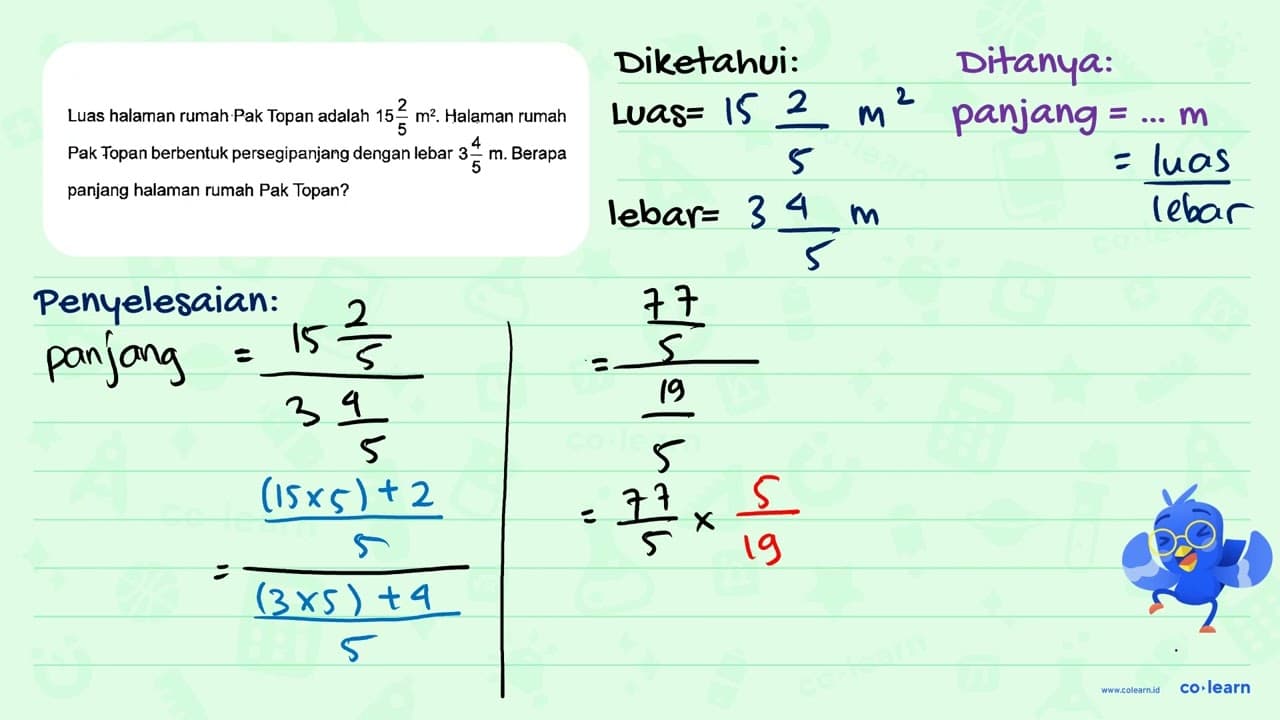 Luas halaman rumah Pak Topan adalah 15 2/5 m². Halaman rumah
Pak Topan berbentuk persegipanjang dengan lebar 3 4/5 m. Berapa
panjang halaman rumah Pak Topan?
Diketahui:
Luas= 15 2/5 m²
lebar= 3 4/5 m
Ditanya:
panjang = ... m
= luas/lebar
Penyelesaian:
panjang = (15 2/5)/(3 4/5)
= (((15×5)+2)/5)/(((3×5)+4)/5)
= (77/5)/(19/5)
= 77/5 × 5/19
www.colearn.id co·learn